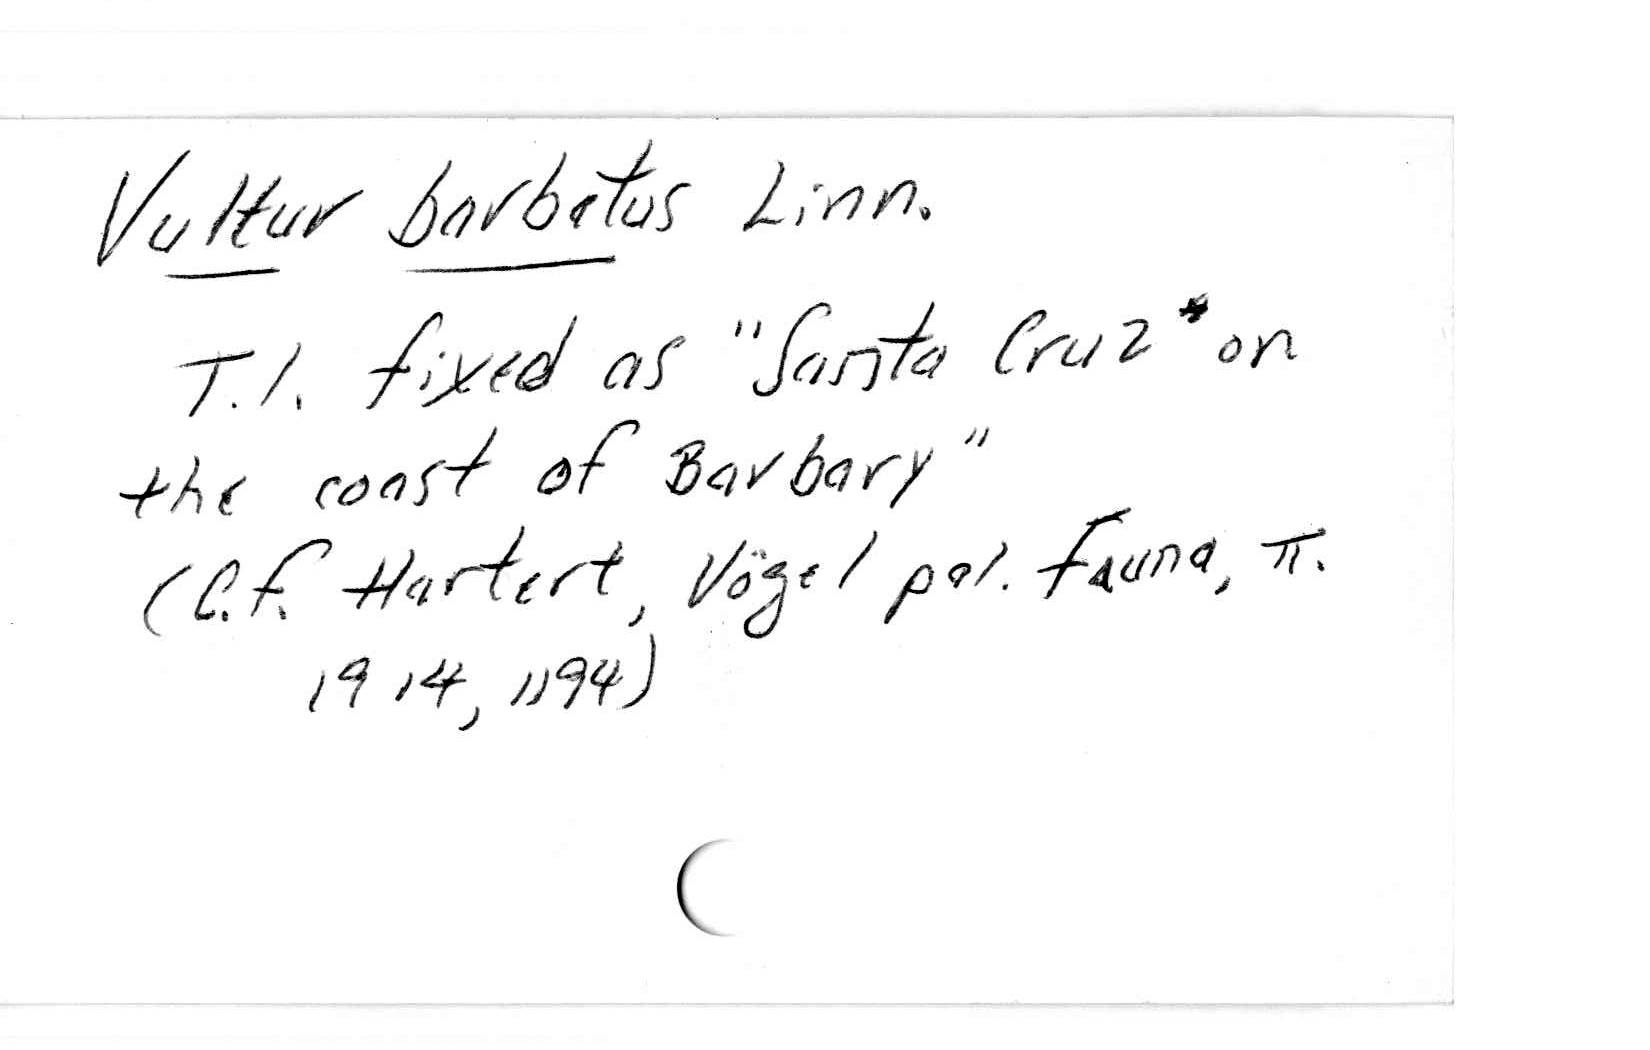 Vultur barbatus Linn.
T.l. fixed as "Santa Cruz* on
the coast of Barbary"
(C.f. Hartert, Vögel pal. Fauna, II.
1914, 1194)